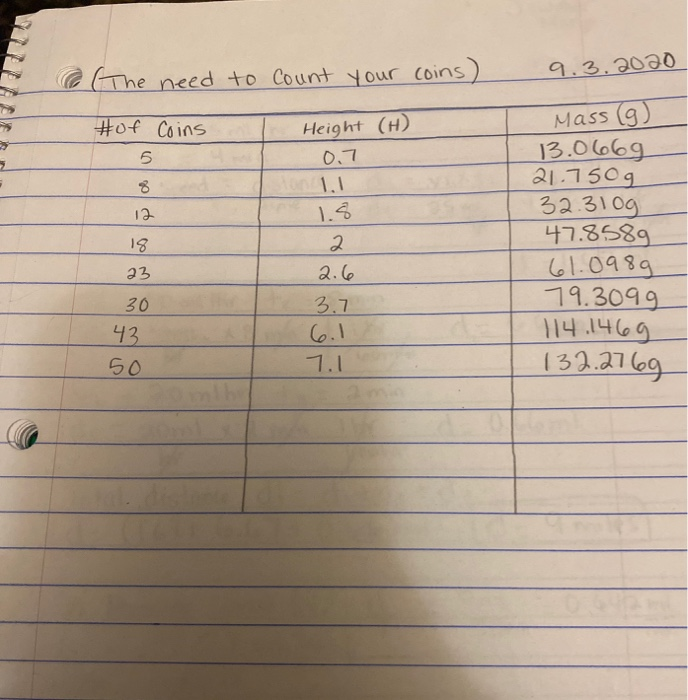 (The need to count your coins) 9.3.2020
#of Coins Height (H) Mass (g)
5 0.7 13.066g
8 1.1 21.750g
12 1.8 32.310g
18 2 47.858g
23 2.6 61.098g
30 3.7 79.309g
43 6.1 114.146g
50 7.1 132.276g